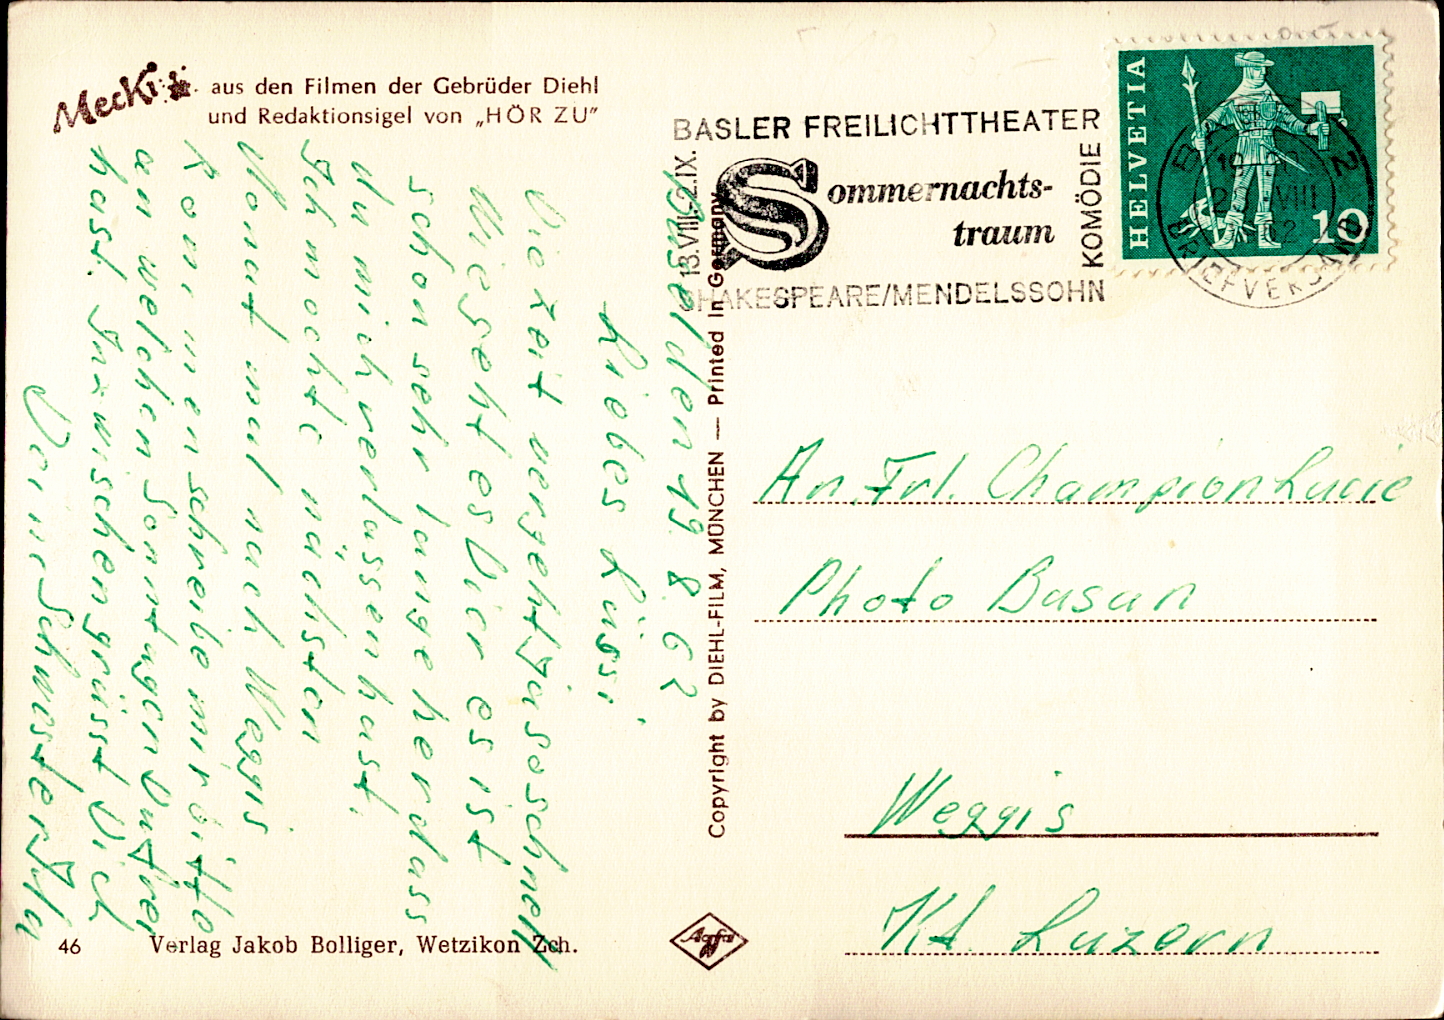 Mecki
aus den Filmen der Gebrüder Diehl
und Redaktionsigel von „HÖR ZU"
BASLER FREILICHTTHEATER
18.VIII.-2.IX.
Sommernachts-
traum
KOMÖDIE
SHAKESPEARE/MENDELSSOHN
HELVETIA
10
BASEL 2
VIII
BRIEFVERSAND
Copyright by DIEHL-FILM, MÜNCHEN — Printed in Germany
Basel den 19. 8. 62
Liebes Lussi,
Die Zeit vergeht ja so schnell
Wie geht es Dir es ist
schon sehr lange her dass
du mich verlassen hast.
Ich möchte nächsten
Monat mal nach Weggis
kommen schreibe mir bitte
an welchen Sonntagen Du frei
hast. Inzwischen grüsst Dich
Deine Schwester
An. Frl. Champion Lucie
Photo Basan
Weggis
Kt. Luzern
Agfa
46
Verlag Jakob Bolliger, Wetzikon Zch.